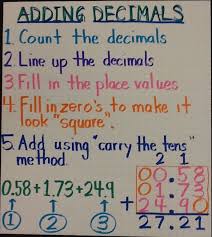 ADDING DECIMALS
1. Count the decimals
2. Line up the decimals
3. Fill in the place values
4. Fill in zero's to make it
look "square".
5. Add using "carry the tens"
method.
2 1
00.58
0.58+1.73+24.9
+ 01.73
24.90
1 2 3
27.21